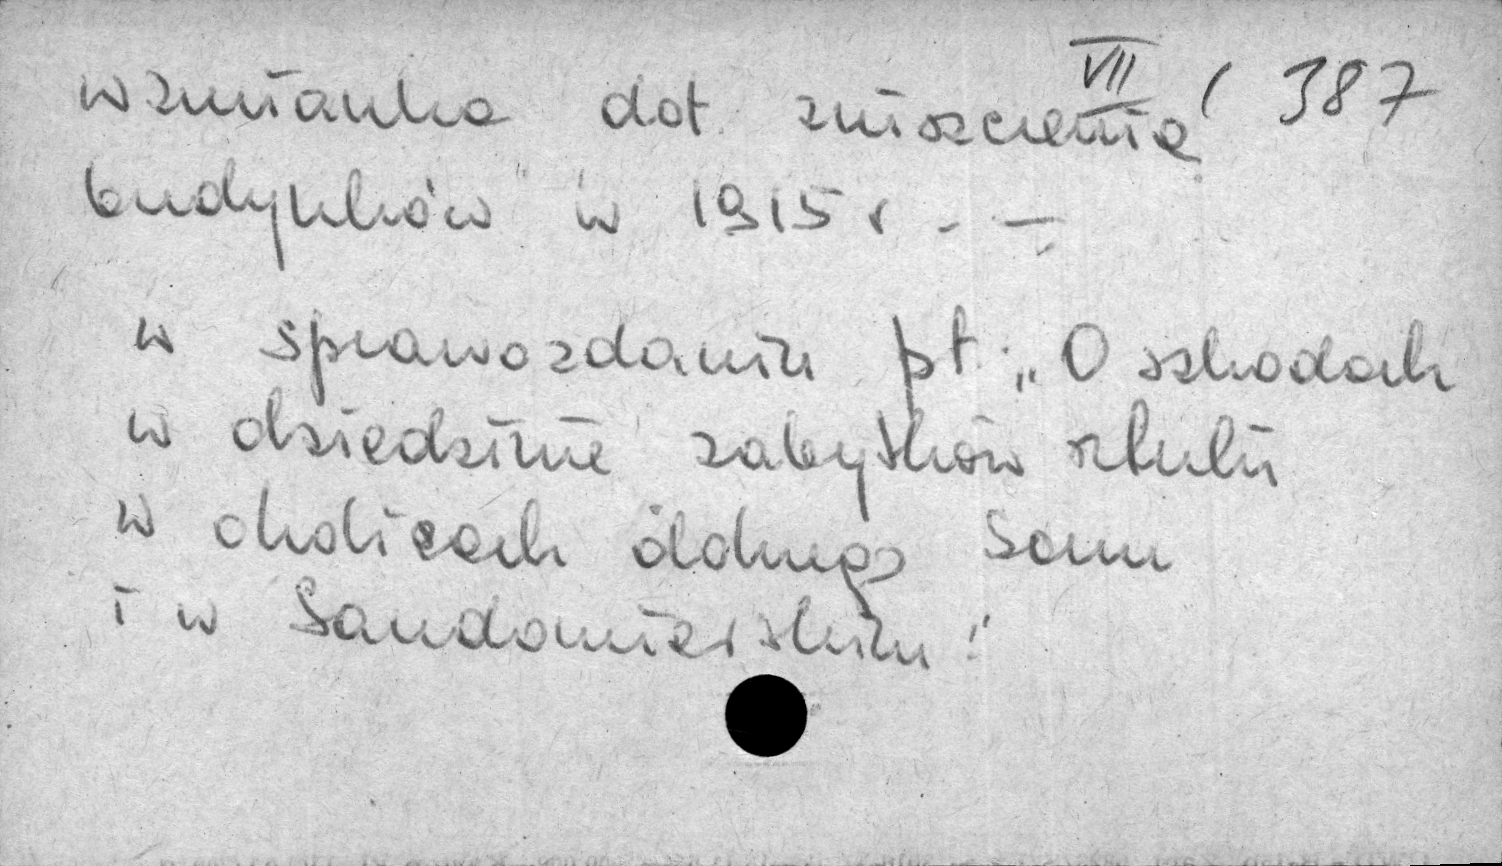 VII / 387
wzmianka dot. zniszczenia
budynków w 1915 r. —
w sprawozdaniu pt. „O szkodach
w dziedzinie zabytków sztuki
w okolicach dolnego Sanu
i w Sandomierskim"